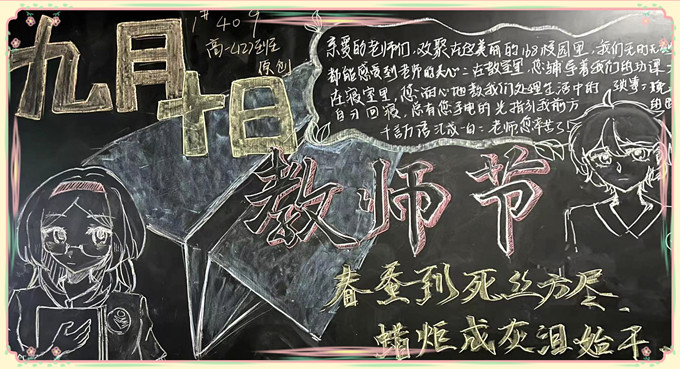 九月
十日
1#409
高一(12)班
原创
亲爱的老师们,欢聚在这美丽的168校园里,我们无时无
都能感受到老师的关心:在教室里,您辅导着我们的功课
在寝室里,您细心地教我们处理生活中的琐事;晚
自习回寝,总有您手电的光指引我前方
千言万语汇成一句:老师您辛苦了!
教师节
春蚕到死丝方尽
蜡炬成灰泪始干